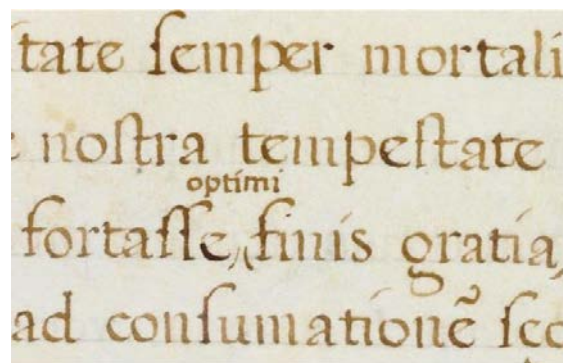 itate ſemper mortali
e noſtra tempeſtate
optimi
fortaſſe, finis gratia,
ad conſumationē ſec